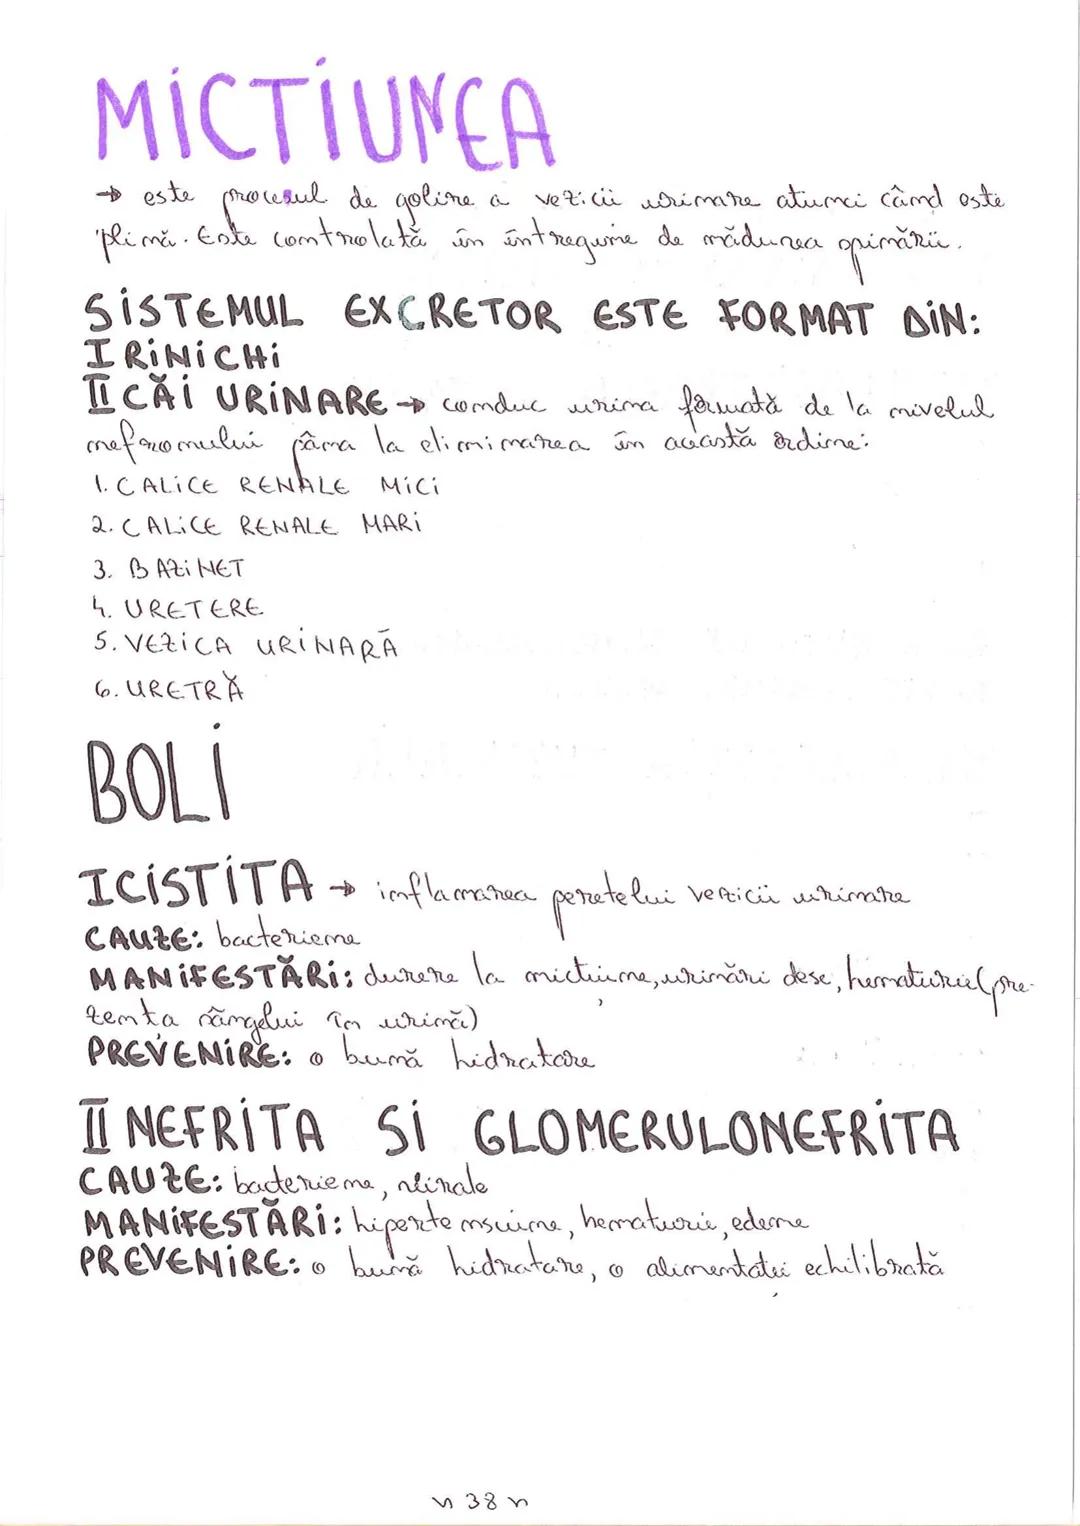 MICTIUNEA
→ este procesul de golire a vezicii urinare atunci când este
plină. Este controlată în întregime de măduvea spinării.
SISTEMUL EXCRETOR ESTE FORMAT DIN:
I RINICHI
II CĂI URINARE → conduc urina formată de la nivelul
nefronului pâna la eliminarea în această ordine:
1. CALICE RENALE MICI
2. CALICE RENALE MARI
3. BAZINET
4. URETERE
5. VEZICA URINARĂ
6. URETRĂ
BOLI
I CISTITA → inflamarea peretelui vezicii urinare
CAUZE: bacteriene
MANIFESTĂRI: durere la micțiune, urinări dese, hematurie (pre-
zența sângelui în urină)
PREVENIRE: o bună hidratare
II NEFRITA SI GLOMERULONEFRITA
CAUZE: bacteriene, virale
MANIFESTĂRI: hipertensiune, hematurie, edeme
PREVENIRE: o bună hidratare, o alimentație echilibrată
~ 38 ~